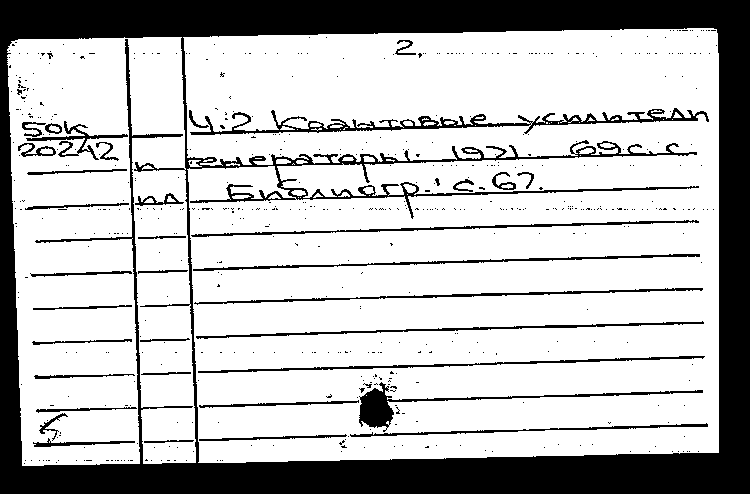 2.
50к Ч.2 Квантовые усилители
20242 п генераторы. 1971. 69 с. с
пл Библиогр.: с. 67.
5